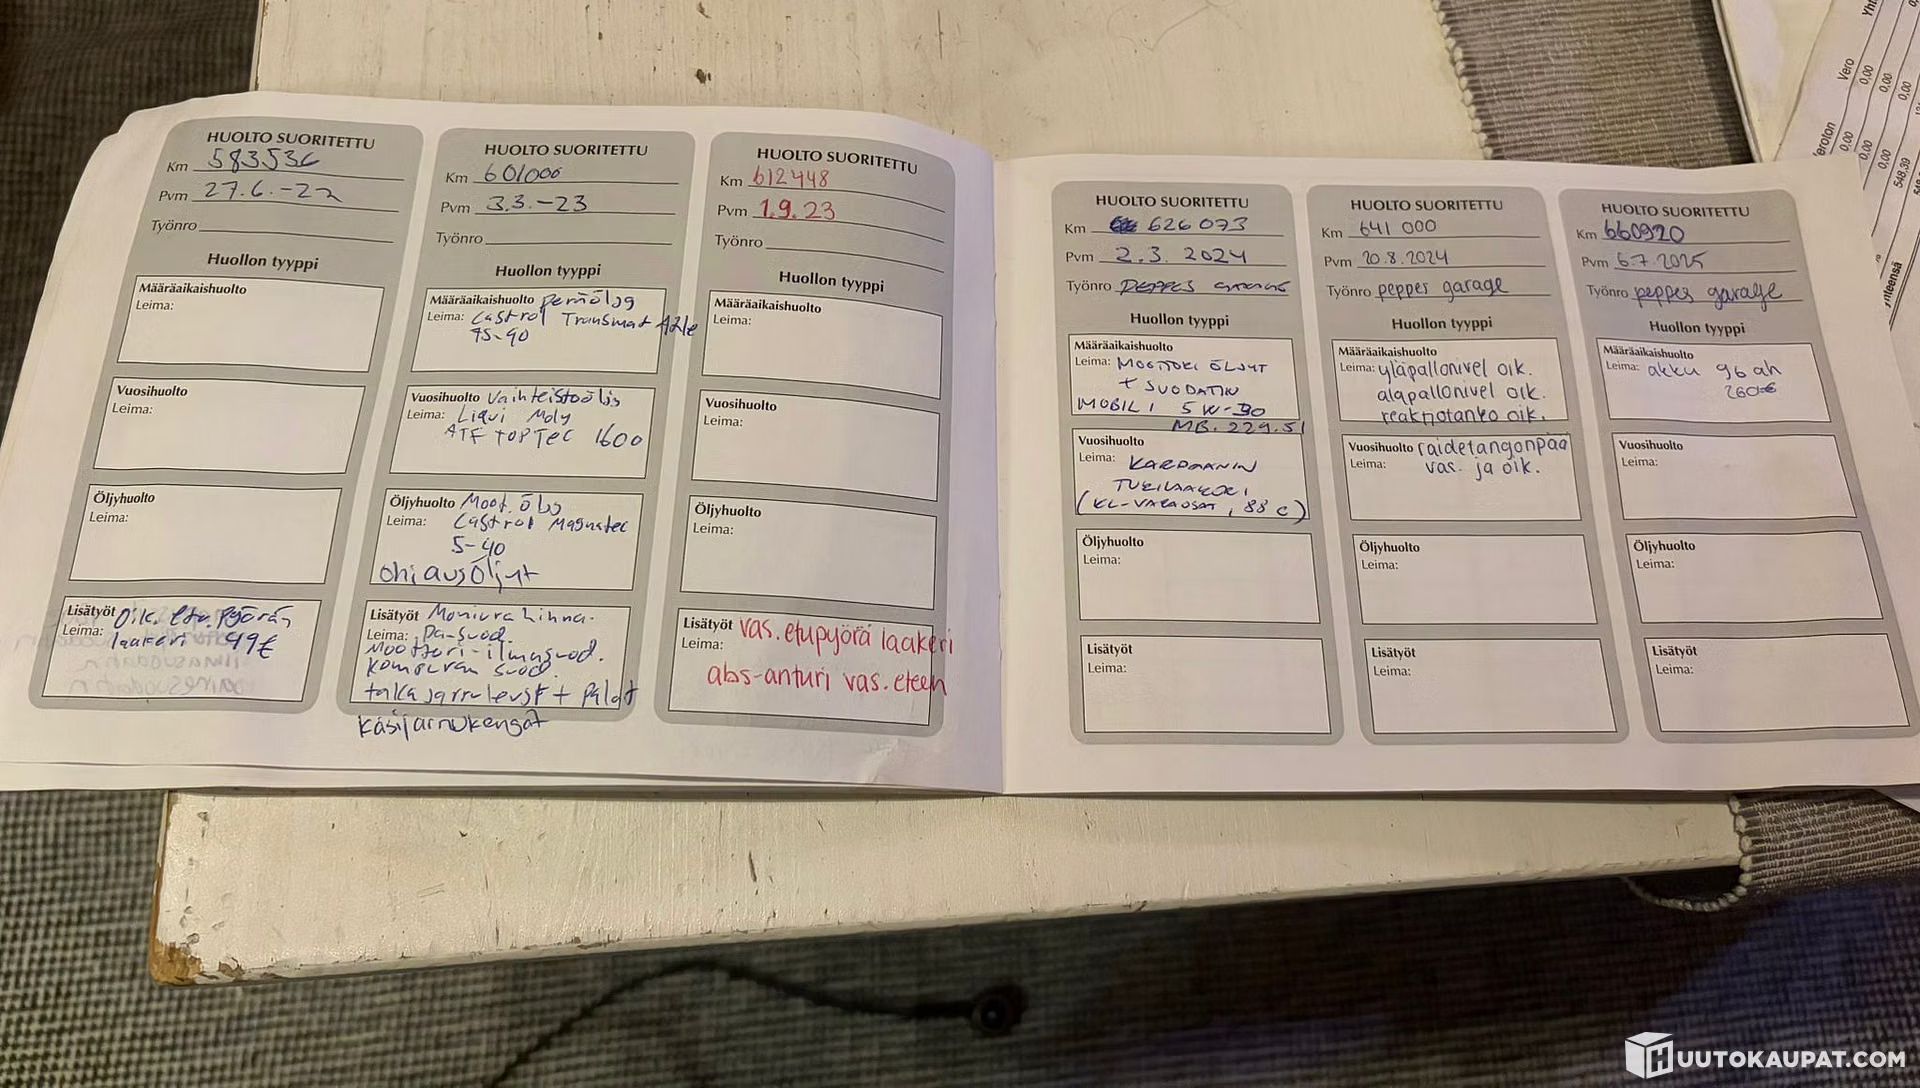 HUOLTO SUORITETTU
Km 583536
Pvm 27.6.-22
Työnro
Huollon tyyppi
Määräaikaishuolto
Leima:
Vuosihuolto
Leima:
Öljyhuolto
Leima:
Lisätyöt Oik. etu. pyörän
Leima: laakeri 49€
HUOLTO SUORITETTU
Km 601000
Pvm 3.3.-23
Työnro
Huollon tyyppi
Määräaikaishuolto peräöljy
Leima: Castrol Transmax Axle
75-90
Vuosihuolto Vaihteistoöljy
Leima: Liqui Moly
ATF TOPTEC 1600
Öljyhuolto Moot. öljy
Leima: Castrol Magnatec
5-40
ohjausöljyt
Lisätyöt Moniurahihna.
Leima: pa-suod.
Moottori-ilmasuod.
suod.
takajarrulevyt + palat
käsijarrukengät
HUOLTO SUORITETTU
Km 612448
Pvm 1.9.23
Työnro
Huollon tyyppi
Määräaikaishuolto
Leima:
Vuosihuolto
Leima:
Öljyhuolto
Leima:
Lisätyöt vas. etupyörä laakeri
Leima:
abs-anturi vas. eteen
HUOLTO SUORITETTU
Km 626073
Pvm 2.3. 2024
Työnro PEPPES GARAGE
Huollon tyyppi
Määräaikaishuolto
Leima: MOOTTORI ÖLJYT
+ SUODATIN
MOBIL 1 5W-30
MB. 229.51
Vuosihuolto
Leima: KARDAANIN
TUKILAAKERI
(KL-VARAOSAT, 88 €)
Öljyhuolto
Leima:
Lisätyöt
Leima:
HUOLTO SUORITETTU
Km 641 000
Pvm 20.8.2024
Työnro peppes garage
Huollon tyyppi
Määräaikaishuolto
Leima: yläpallonivel oik.
alapallonivel oik.
reaktiotanko oik.
Vuosihuolto raidetangonpää
Leima: vas. ja oik.
Öljyhuolto
Leima:
Lisätyöt
Leima:
HUOLTO SUORITETTU
Km 660920
Pvm 6.7.2025
Työnro peppes garage
Huollon tyyppi
Määräaikaishuolto
Leima: akku 96 ah
260€
Vuosihuolto
Leima:
Öljyhuolto
Leima:
Lisätyöt
Leima:
Vero
0,00
0,00
0,00
0,00
0,00
0,00
548,39
HUUTOKAUPAT.COM